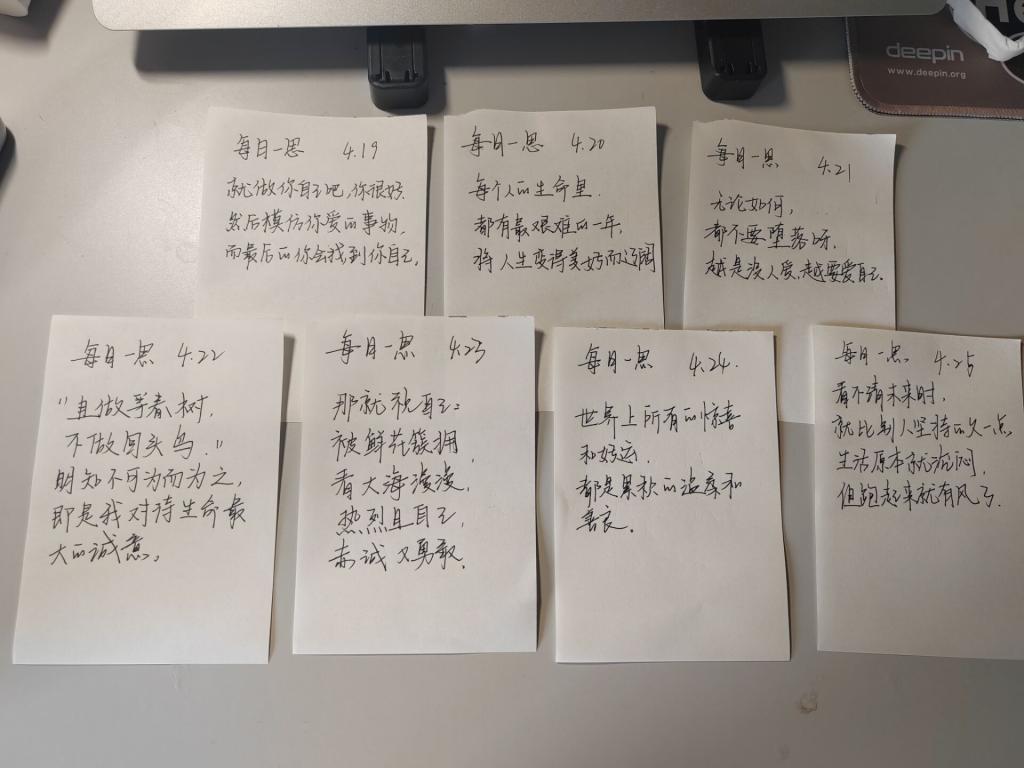 deepin
www.deepin.org
每日一思 4.19
就做你自己吧,你很好.
然后模仿你爱的事物,
而最后的你会找到你自己.
每日一思 4.20
每个人的生命里.
都有最艰难的一年,
将人生变得美好而辽阔
每日一思 4.21
无论如何,
都不要堕落呀.
越是没人爱,越要爱自己.
每日一思 4.22
"且做等春树,
不做回头鸟."
明知不可为而为之,
即是我对待生命最
大的诚意.
每日一思 4.23
那就祝自己:
被鲜花簇拥,
看大海漫漫,
热烈且自己,
赤诚又勇敢.
每日一思 4.24.
世界上所有的惊喜
和好运,
都是累积的温柔和
善良.
每日一思. 4.25
看不清未来时,
就比别人坚持的久一点
生活原本沉闷,
但跑起来就有风了.